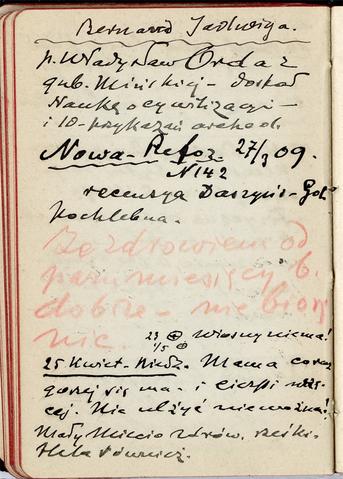 Bernard Jadwiga.
p. Władysław Orda z
gub. Mińskiej - dostał
Naukę o cywilizacyi -
i 10-przykazań
Nowa-Refor. 27/3 09.
N 142
recenzya Daszyńs-
pochlebna.
Ze zdrowiem od
paru miesięcy b.
dobrze - nie biorę
nic.
23 1/5 Wiosny niema!
25 Kwiet. - Niedz. Mama coraz
gorzej się ma - i cierpi więc-
cej. Nic ulżyć nie można!
Mały Miecio zdrów, rześki.
Hela również.